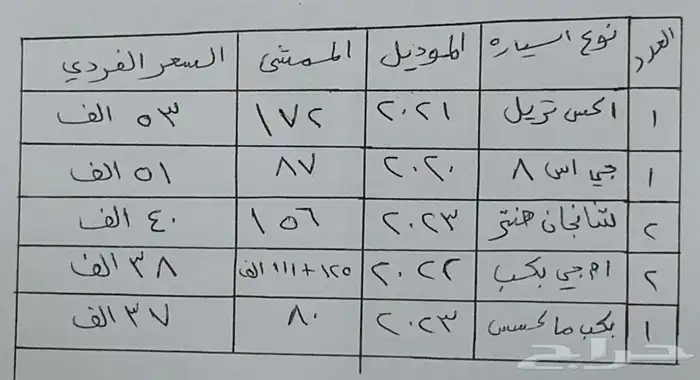 العدد نوع السياره الموديل الممشى السعر الفردي
١ اكس تريل ٢٠٢١ ١٧٢ ٥٣ الف
١ جي اس ٨ ٢٠٢٠ ٨٧ ٥١ الف
٢ شانجان هنتر ٢٠٢٣ ١٥٦ ٤٠ الف
٢ ام جي بكب ٢٠٢٢ ١٢٥+١١١ الف ٣٨ الف
١ بكب ماكسس ٢٠٢٣ ٨٠ ٣٧ الف
حراج